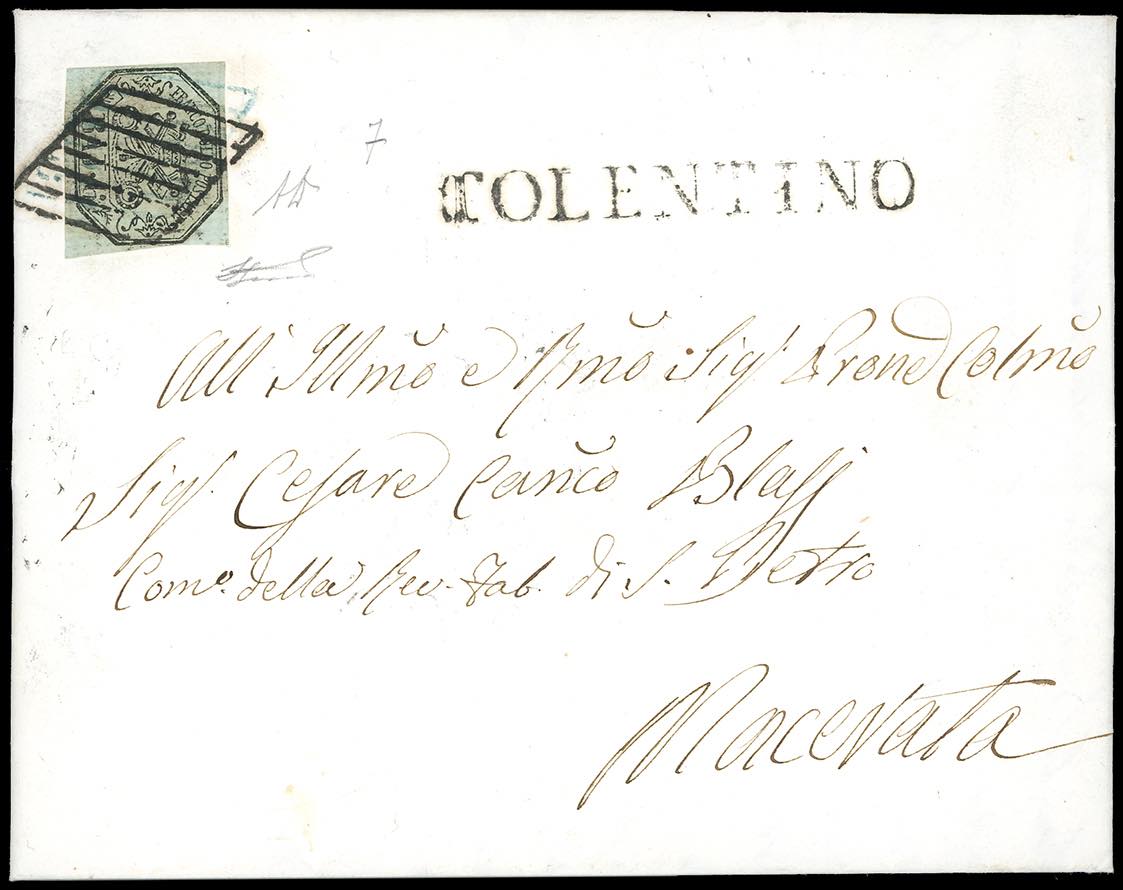 FRANCO BOLLO
7
AD
TOLENTINO
All' Illmo e Rmo Sig.r Prone Colmo
Sig.r Cesare Canco Blasj
Com.o della Rev. Fab. di S. Pietro
Macerata